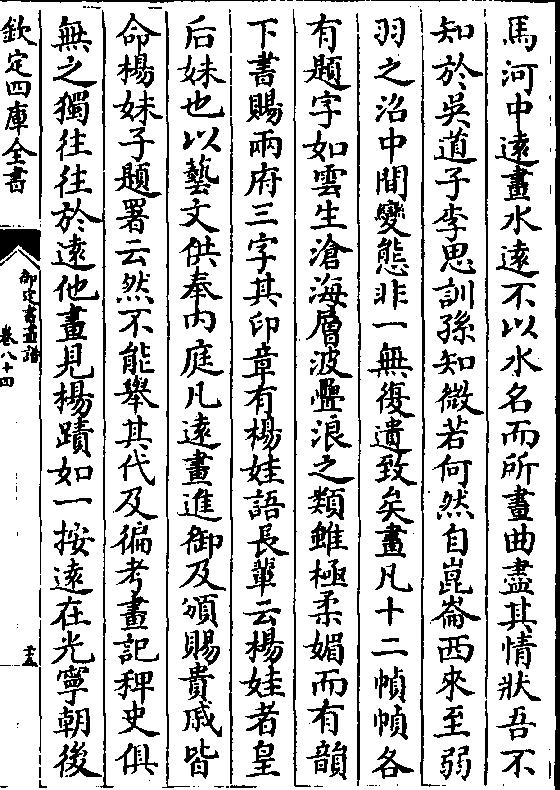 馬河中遠畫水遠不以水名而所畫曲盡其情狀吾不
知於吳道子李思訓孫知微若何然自崑崙西來至弱
羽之沼中間變態非一無復遺致矣畫凡十二幀幀各
有題字如雲生滄海層波疊浪之類雖極柔媚而有韻
下書賜兩府三字其印章有楊娃語長輩云楊娃者皇
后妹也以藝文供奉內庭凡遠畫進御及頒賜貴戚皆
命楊妹子題署云然不能舉其代及徧考畫記稗史俱
無之獨往往於遠他畫見楊蹟如一按遠在光寧朝後
欽定四庫全書
御定書畫譜
卷八十四